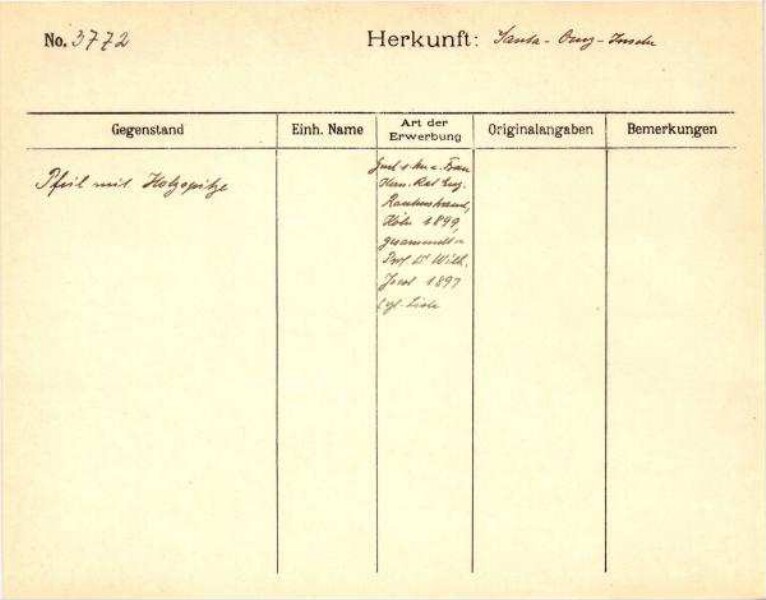 No. 3772
Herkunft: Santa-Cruz-Inseln
Gegenstand
Einh. Name
Art der
Erwerbung
Originalangaben
Bemerkungen
Pfeil mit Holzspitze
Frau
Eug.
Rautenstrauch,
Köln 1899,
gesammelt v.
Prof. Dr. Wilh.
Joest 1897
vgl. Liste